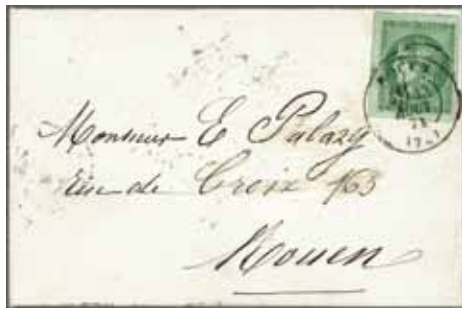 Monsieur E Palazy
Rue de Croix 163
Rouen